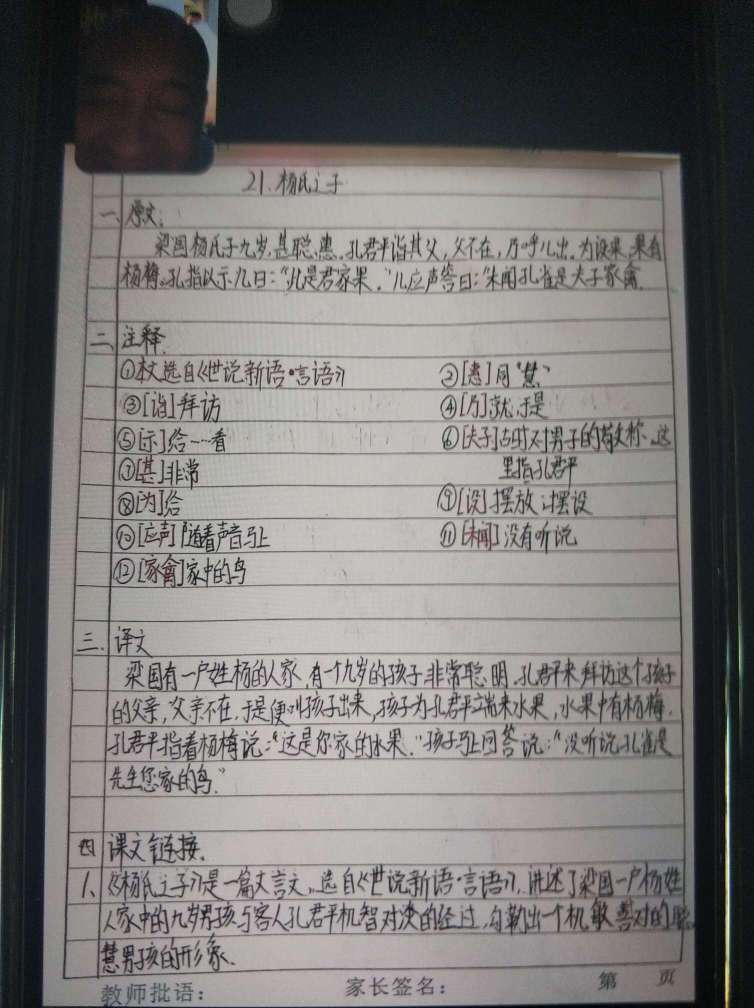 21.杨氏之子
一、原文:
梁国杨氏子九岁,甚聪惠。孔君平诣其父,父不在,乃呼儿出。为设果,果有
杨梅。孔指以示儿曰:“此是君家果。”儿应声答曰:“未闻孔雀是夫子家禽。
二、注释
①本文选自《世说新语·言语》 ②[惠]同“慧”
③[诣]拜访 ④[乃]就,于是
⑤[示]给……看 ⑥[夫子]古时对男子的敬称,这
⑦[甚]非常 里指孔君平
⑧[为]给 ⑨[设]摆放,摆设
⑩[应声]随着声音马上 ⑪[未闻]没有听说
⑫[家禽]家中的鸟
三.译文
梁国有一户姓杨的人家,有一个九岁的孩子非常聪明。孔君平来拜访这个孩子
的父亲,父亲不在,于是便叫孩子出来,孩子为孔君平端来水果,水果中有杨梅。
孔君平指着杨梅说:“这是你家的水果。”孩子马上回答说:“没听说孔雀是
先生您家的鸟。”
四 课文链接.
1、《杨氏之子》是一篇文言文,选自《世说新语·言语》,讲述了梁国一户杨姓
人家中的九岁男孩与客人孔君平机智对决的经过,勾勒出一个机敏善对的聪
慧男孩的形象.
教师批语: 家长签名: 第 页